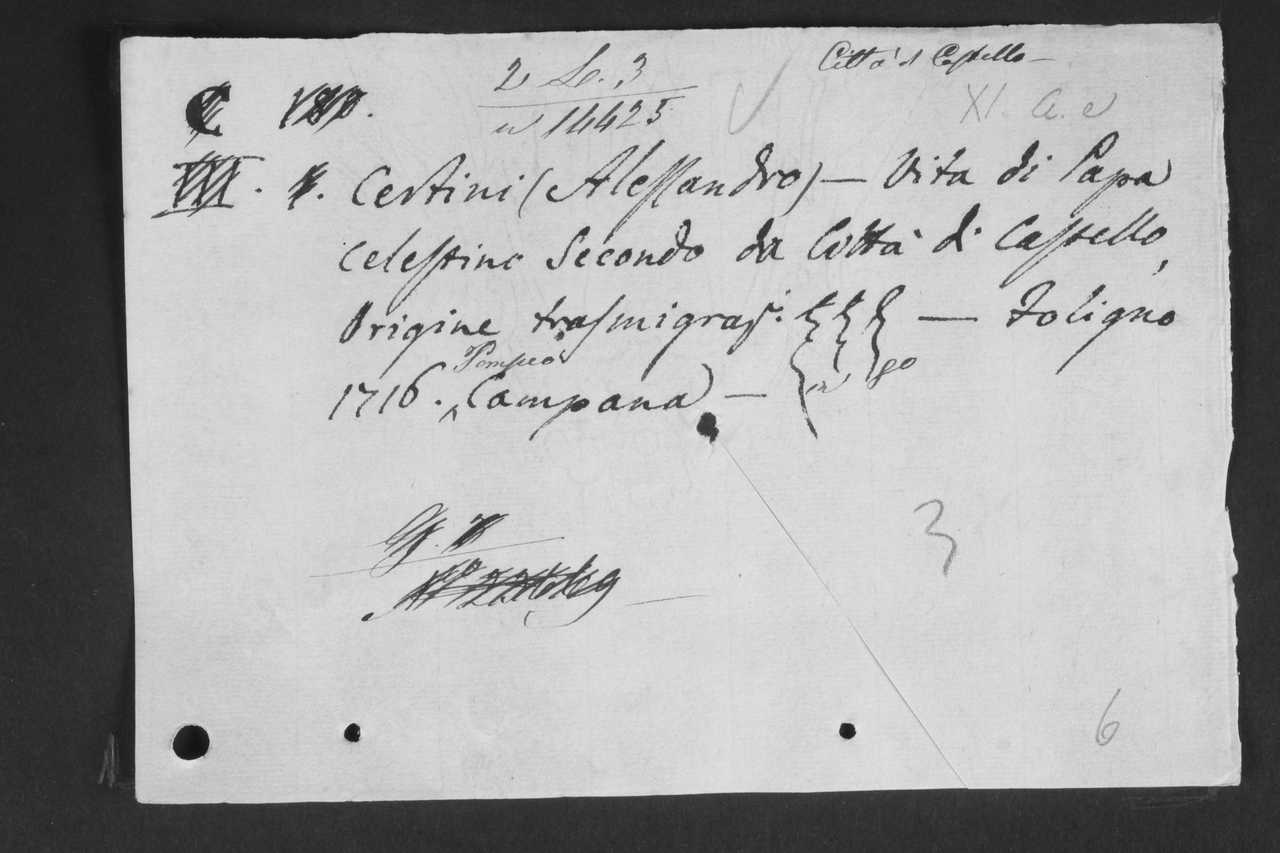 Città d Castello —
2 Le. 3
n 14425
XI. a. e
Certini (Alessandro) — Vita di Papa
Celestino Secondo da Città di Castello,
Origine trasmigraz.
— Foligno
1716. Pompeo Campana —
in go
3
6